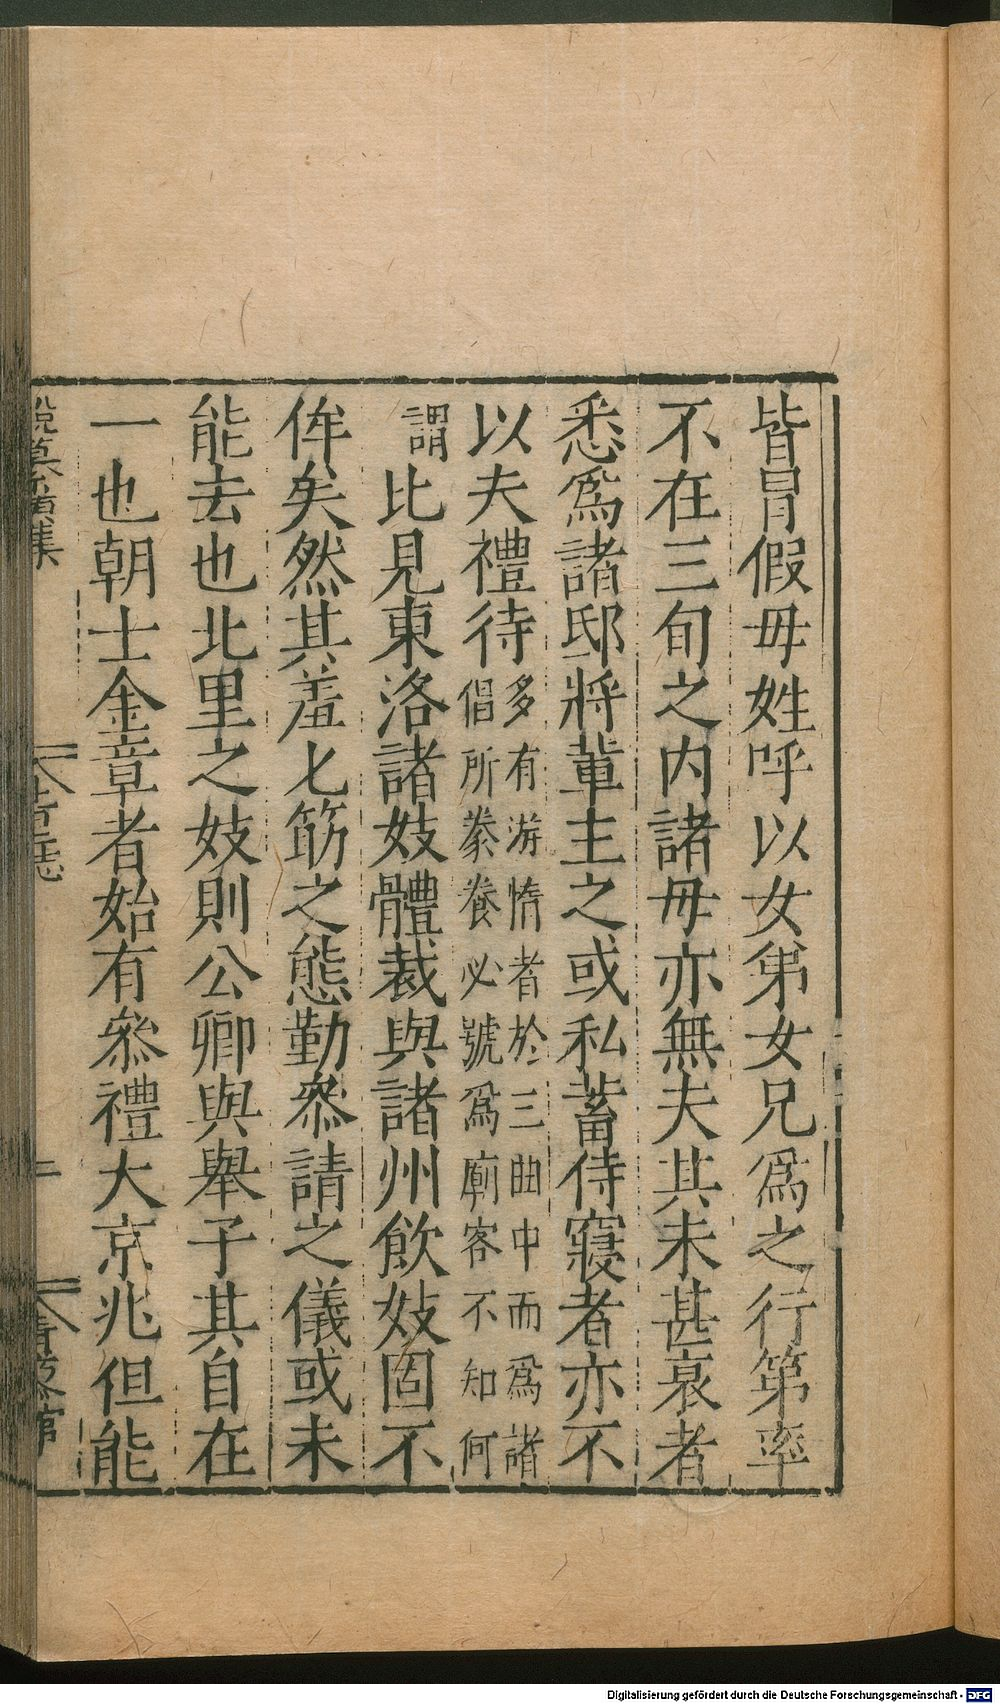 皆冐假母姓呼以女弟女兄爲之行第率
不在三旬之内諸母亦無夫其未甚衰者
悉爲諸邸將軰主之或私蓄侍寢者亦不
以夫禮待多有游惰者於三曲中而爲諸
倡所豢養必號爲廟客不知何
謂比見東洛諸妓體裁與諸州飲妓固不
侔矣然其羞匕筯之態勤叅請之儀或未
能去也北里之妓則公卿與舉子其自在
一也朝士金章者始有叅禮大京兆但能
二
Digitalisierung gefördert durch die Deutsche Forschungsgemeinschaft - DFG